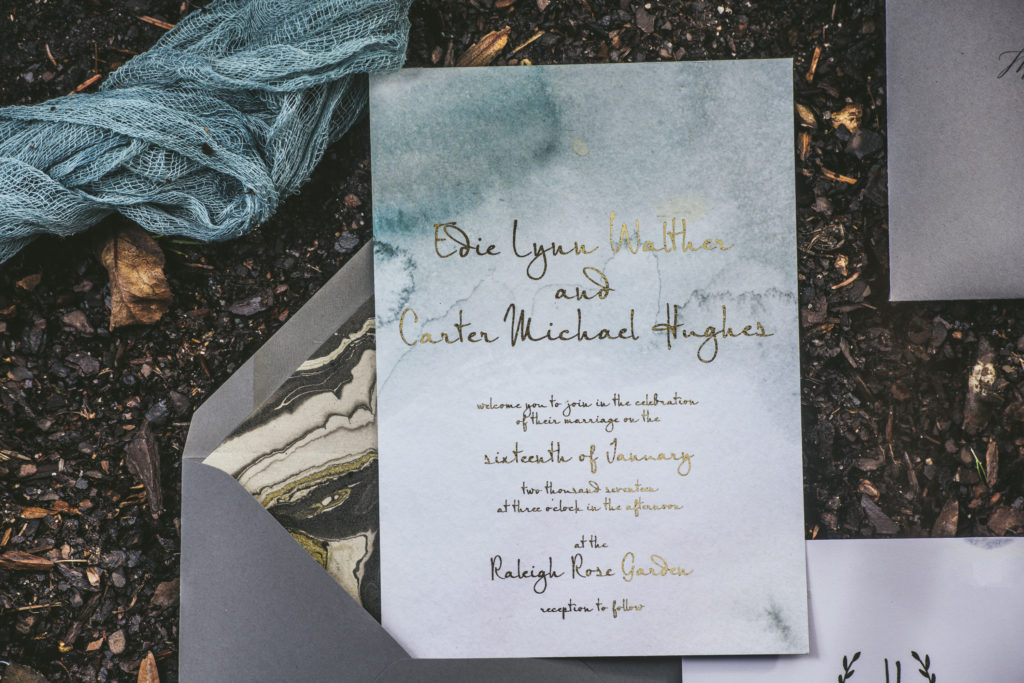 Edie Lynn Walther
and
Carter Michael Hughes
welcome you to join in the celebration
of their marriage on the
sixteenth of January
two thousand seventeen
at three o'clock in the afternoon
at the
Raleigh Rose Garden
reception to follow